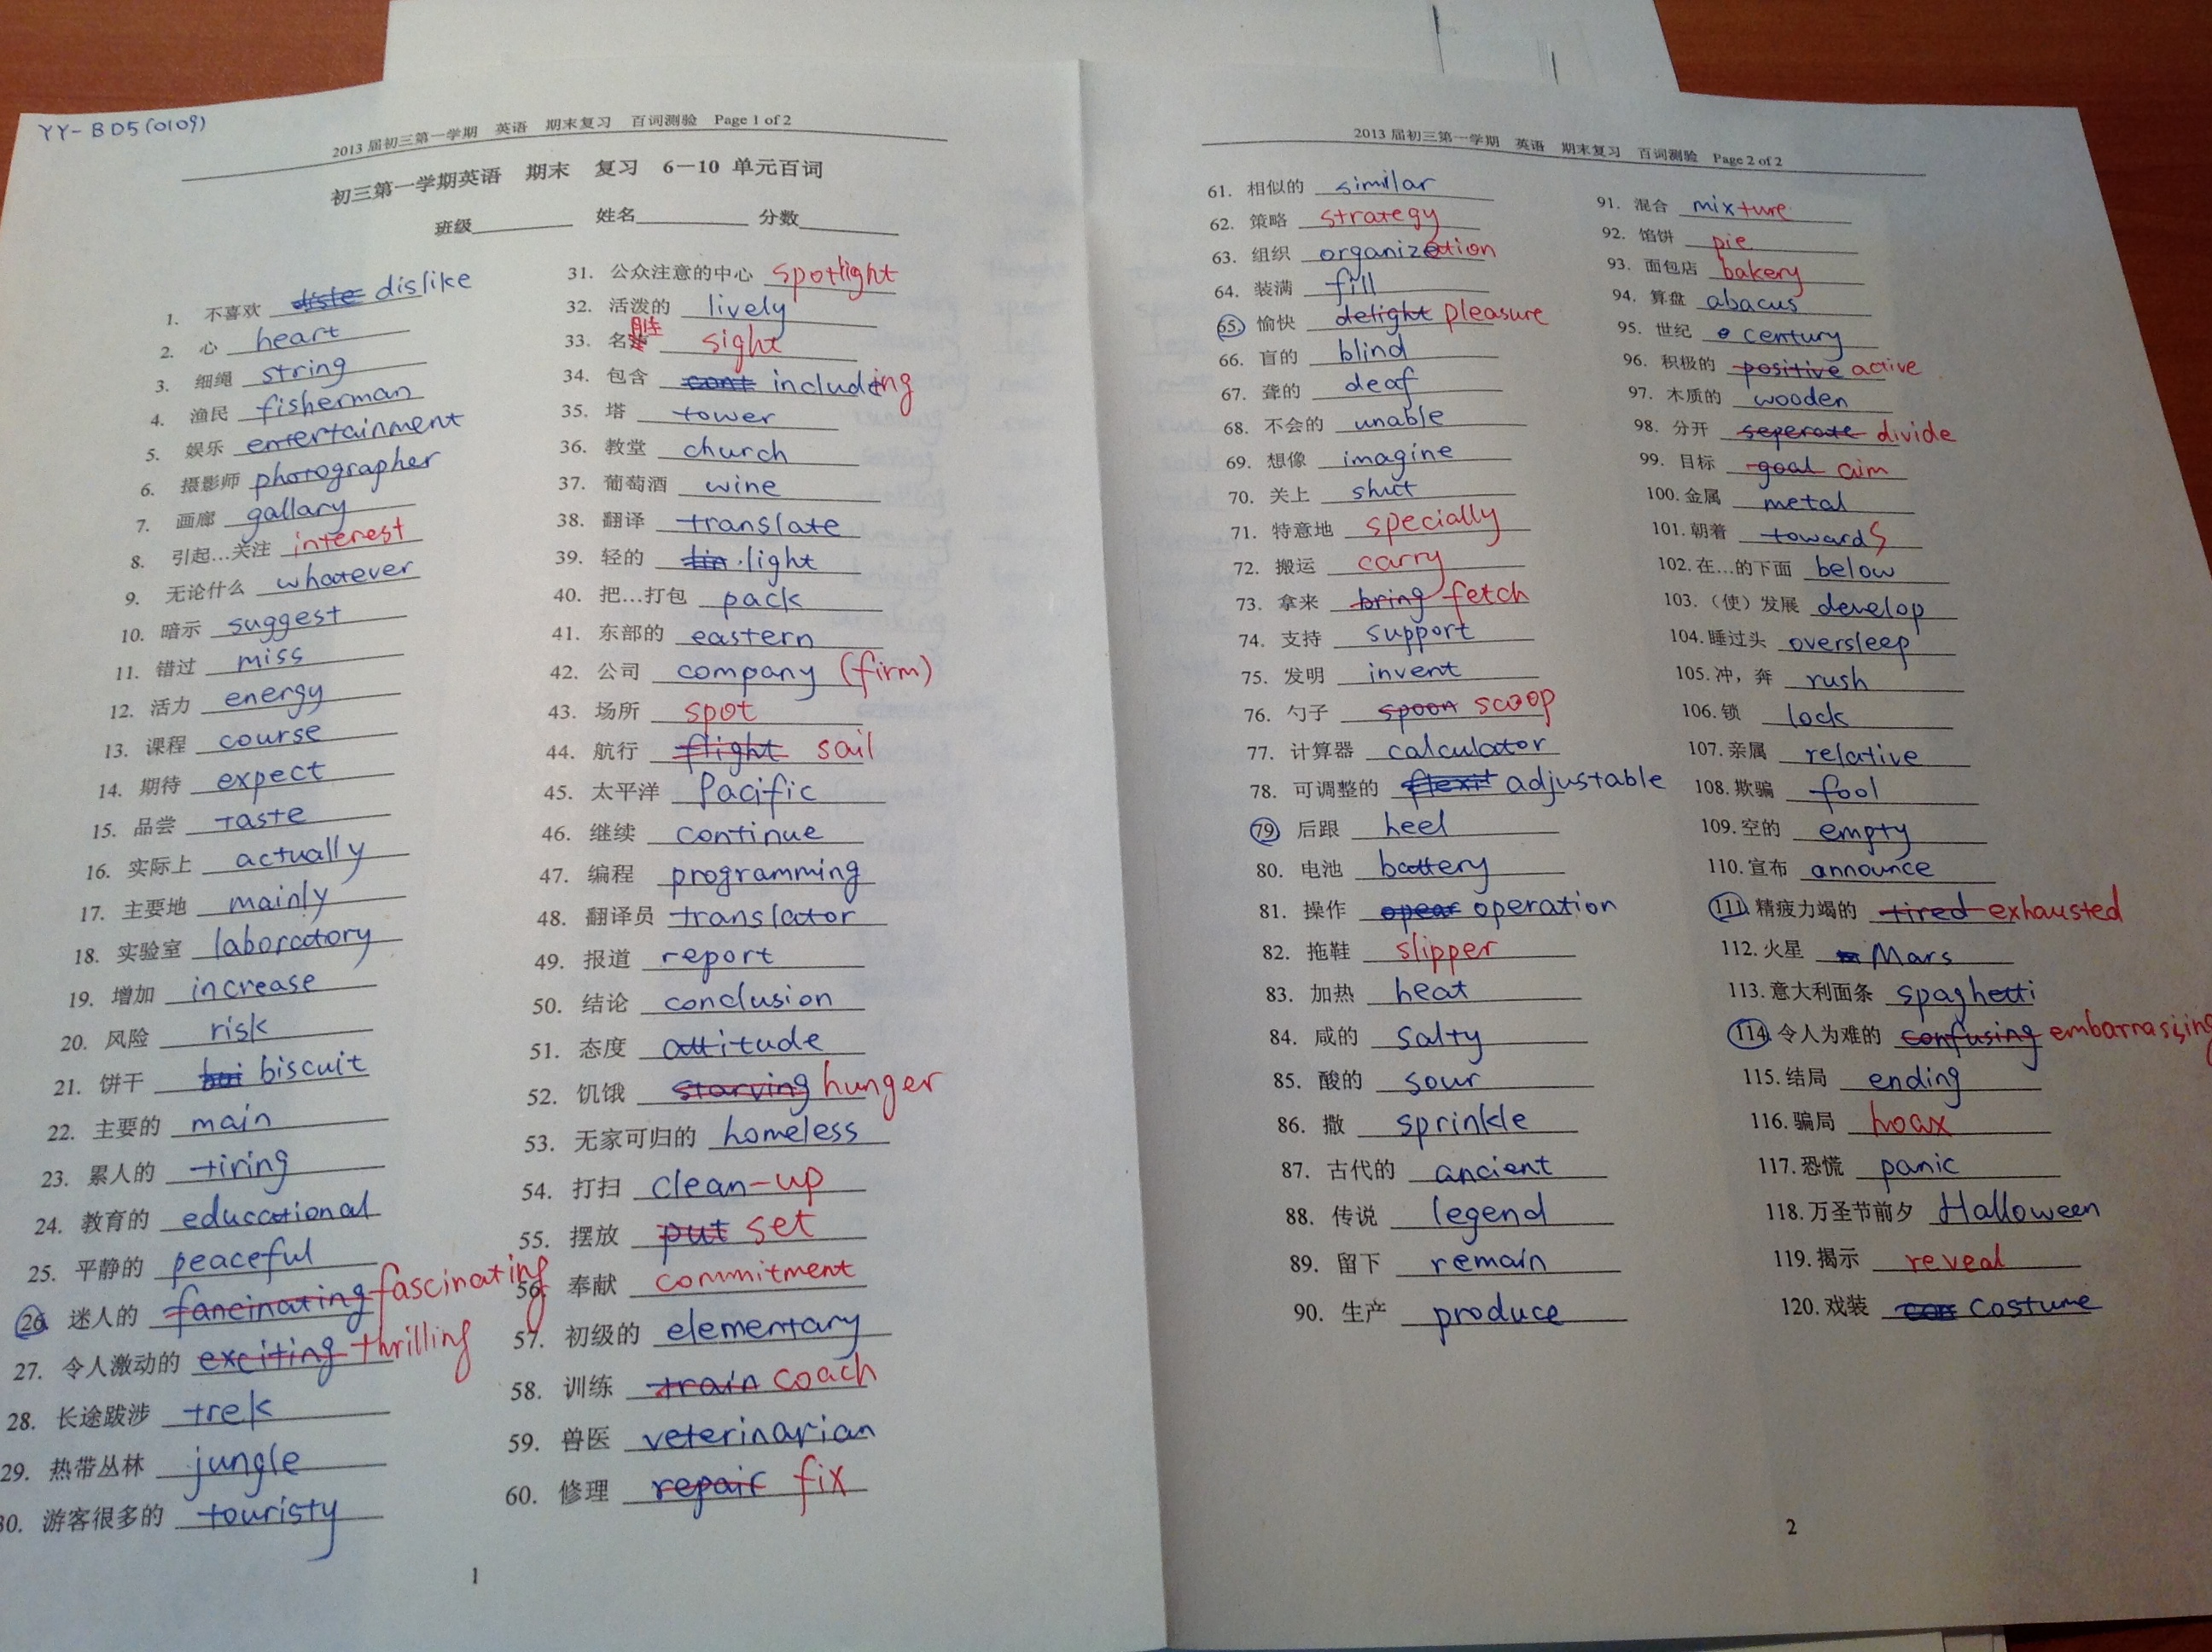 YY-BD5(0109)
2013届初三第一学期 英语 期末复习 百词测验 Page 1 of 2
初三第一学期英语 期末 复习 6—10 单元百词
班级 姓名 分数
1. 不喜欢 dislike
2. 心 heart
3. 细绳 string
4. 渔民 fisherman
5. 娱乐 entertainment
6. 摄影师 photographer
7. 画廊 gallary
8. 引起…关注 interest
9. 无论什么 whatever
10. 暗示 suggest
11. 错过 miss
12. 活力 energy
13. 课程 course
14. 期待 expect
15. 品尝 taste
16. 实际上 actually
17. 主要地 mainly
18. 实验室 laboratory
19. 增加 increase
20. 风险 risk
21. 饼干 biscuit
22. 主要的 main
23. 累人的 tiring
24. 教育的 educational
25. 平静的 peaceful
26. 迷人的 fancinating fascinating
27. 令人激动的 exciting thrilling
28. 长途跋涉 trek
29. 热带丛林 jungle
30. 游客很多的 touristy
31. 公众注意的中心 spotlight
32. 活泼的 lively
33. 名胜 sight
34. 包含 cont including
35. 塔 tower
36. 教堂 church
37. 葡萄酒 wine
38. 翻译 translate
39. 轻的 light
40. 把…打包 pack
41. 东部的 eastern
42. 公司 company (firm)
43. 场所 spot
44. 航行 flight sail
45. 太平洋 Pacific
46. 继续 continue
47. 编程 programming
48. 翻译员 translator
49. 报道 report
50. 结论 conclusion
51. 态度 attitude
52. 饥饿 starving hunger
53. 无家可归的 homeless
54. 打扫 clean-up
55. 摆放 put set
56. 奉献 commitment
57. 初级的 elementary
58. 训练 train coach
59. 兽医 veterinarian
60. 修理 repair fix
1
2013届初三第一学期 英语 期末复习 百词测验 Page 2 of 2
61. 相似的 similar
62. 策略 strategy
63. 组织 organization
64. 装满 fill
65. 愉快 delight pleasure
66. 盲的 blind
67. 聋的 deaf
68. 不会的 unable
69. 想像 imagine
70. 关上 shut
71. 特意地 specially
72. 搬运 carry
73. 拿来 bring fetch
74. 支持 support
75. 发明 invent
76. 勺子 spoon scoop
77. 计算器 calculator
78. 可调整的 adjustable
79. 后跟 heel
80. 电池 battery
81. 操作 operation
82. 拖鞋 slipper
83. 加热 heat
84. 咸的 salty
85. 酸的 sour
86. 撒 sprinkle
87. 古代的 ancient
88. 传说 legend
89. 留下 remain
90. 生产 produce
91. 混合 mixture
92. 馅饼 pie
93. 面包店 bakery
94. 算盘 abacus
95. 世纪 century
96. 积极的 positive active
97. 木质的 wooden
98. 分开 seperate divide
99. 目标 goal aim
100. 金属 metal
101. 朝着 towards
102. 在…的下面 below
103. （使）发展 develop
104. 睡过头 oversleep
105. 冲，奔 rush
106. 锁 lock
107. 亲属 relative
108. 欺骗 fool
109. 空的 empty
110. 宣布 announce
111. 精疲力竭的 tired exhausted
112. 火星 Mars
113. 意大利面条 spaghetti
114. 令人为难的 confusing embarrassing
115. 结局 ending
116. 骗局 hoax
117. 恐慌 panic
118. 万圣节前夕 Halloween
119. 揭示 reveal
120. 戏装 costume
2